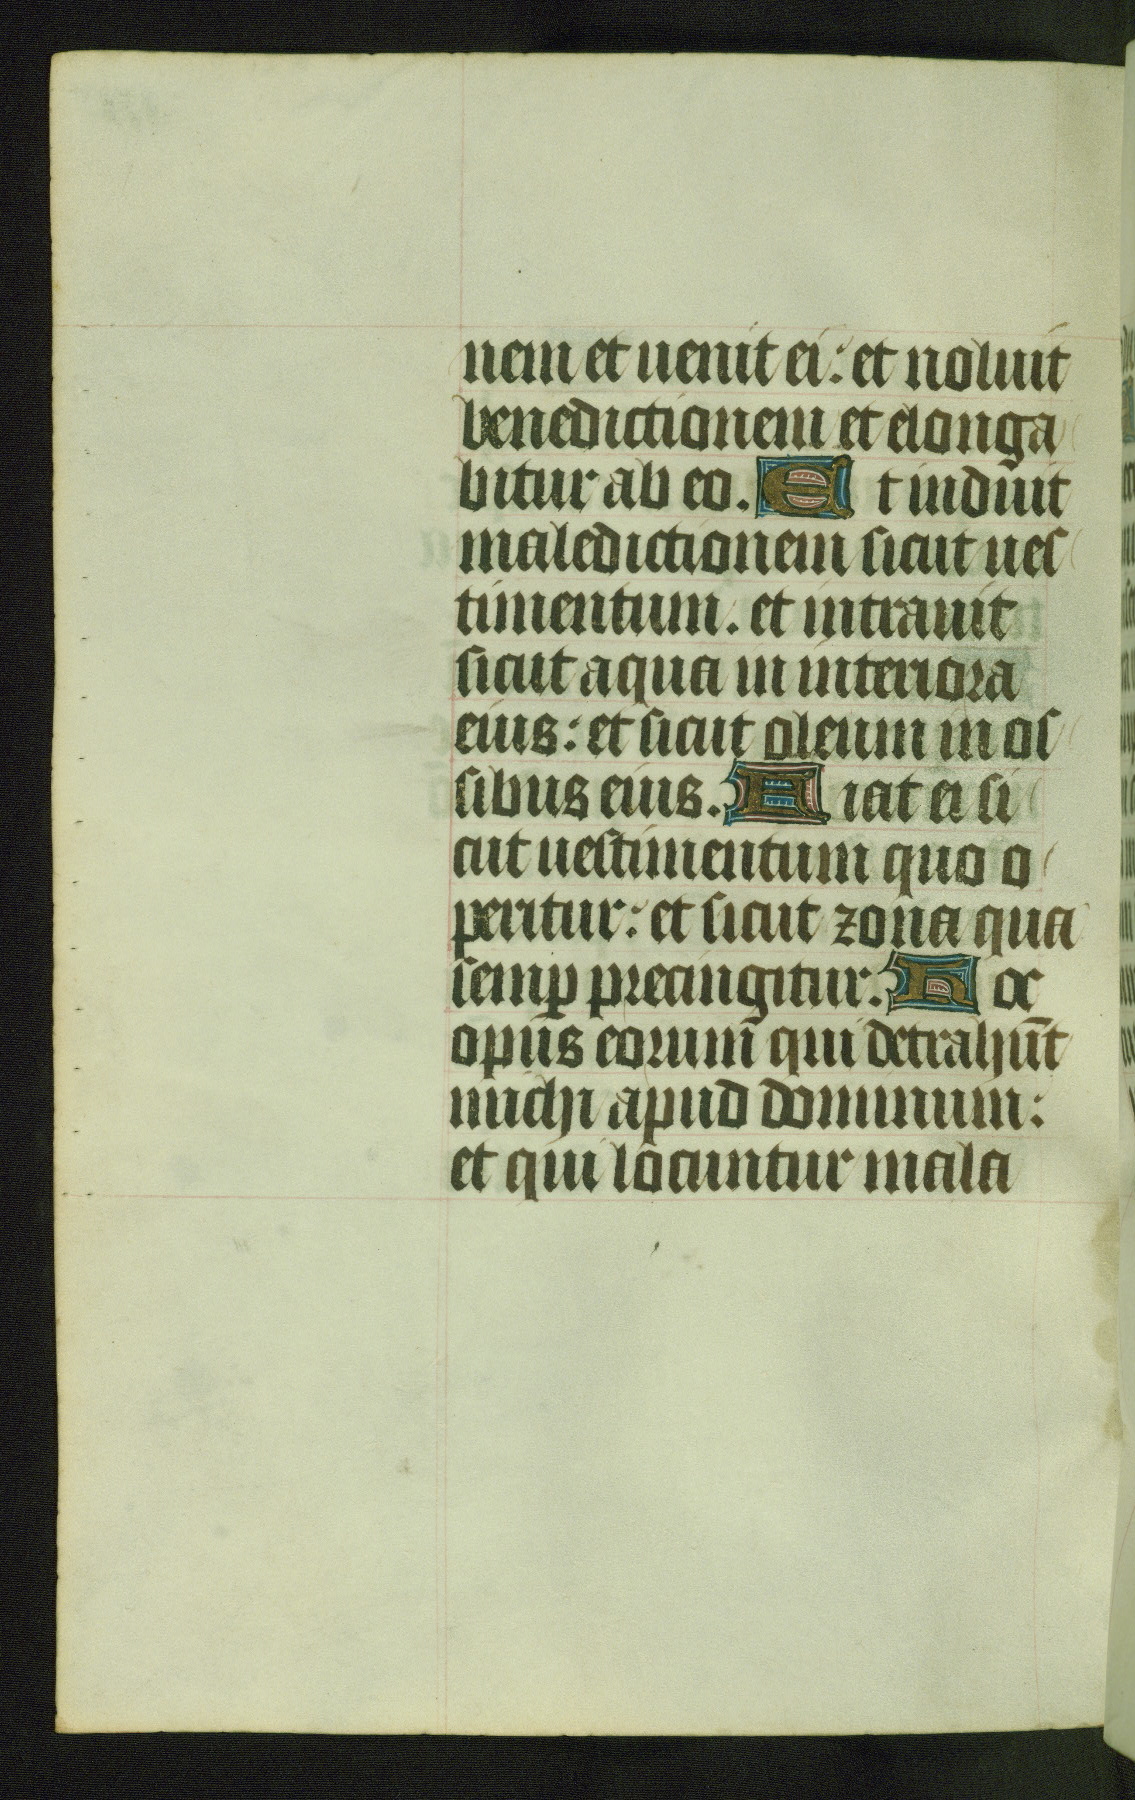 nem et uenit ei: et noluit
benedictionem et elonga
bitur ab eo. Et induit
maledictionem sicut ues
timentum. et intrauit
sicut aqua in interiora
eius: et sicut oleum in os
sibus eius. Fiat ei si
cut uestimentum quo o
peritur: et sicut zona qua
semꝑ precingitur. Hoc
opus eorum̄ qui detrahūt
michi apud dominum:
et qui locuntur mala